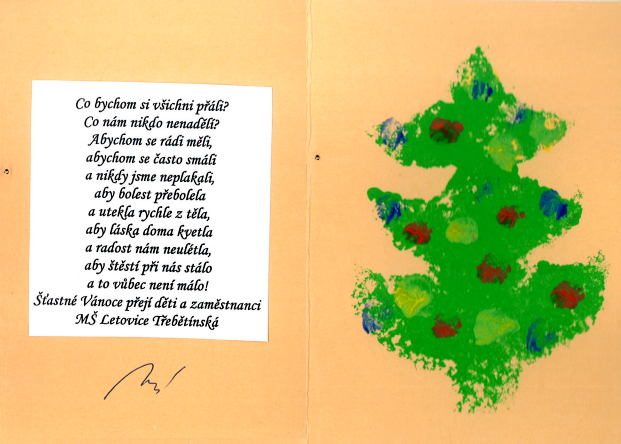 Co bychom si všichni přáli?
Co nám nikdo nenadělí?
Abychom se rádi měli,
abychom se často smáli
a nikdy jsme neplakali,
aby bolest přebolela
a utekla rychle z těla,
aby láska doma kvetla
a radost nám neulétla,
aby štěstí při nás stálo
a to vůbec není málo!
Šťastné Vánoce přejí děti a zaměstnanci
MŠ Letovice Třebětínská